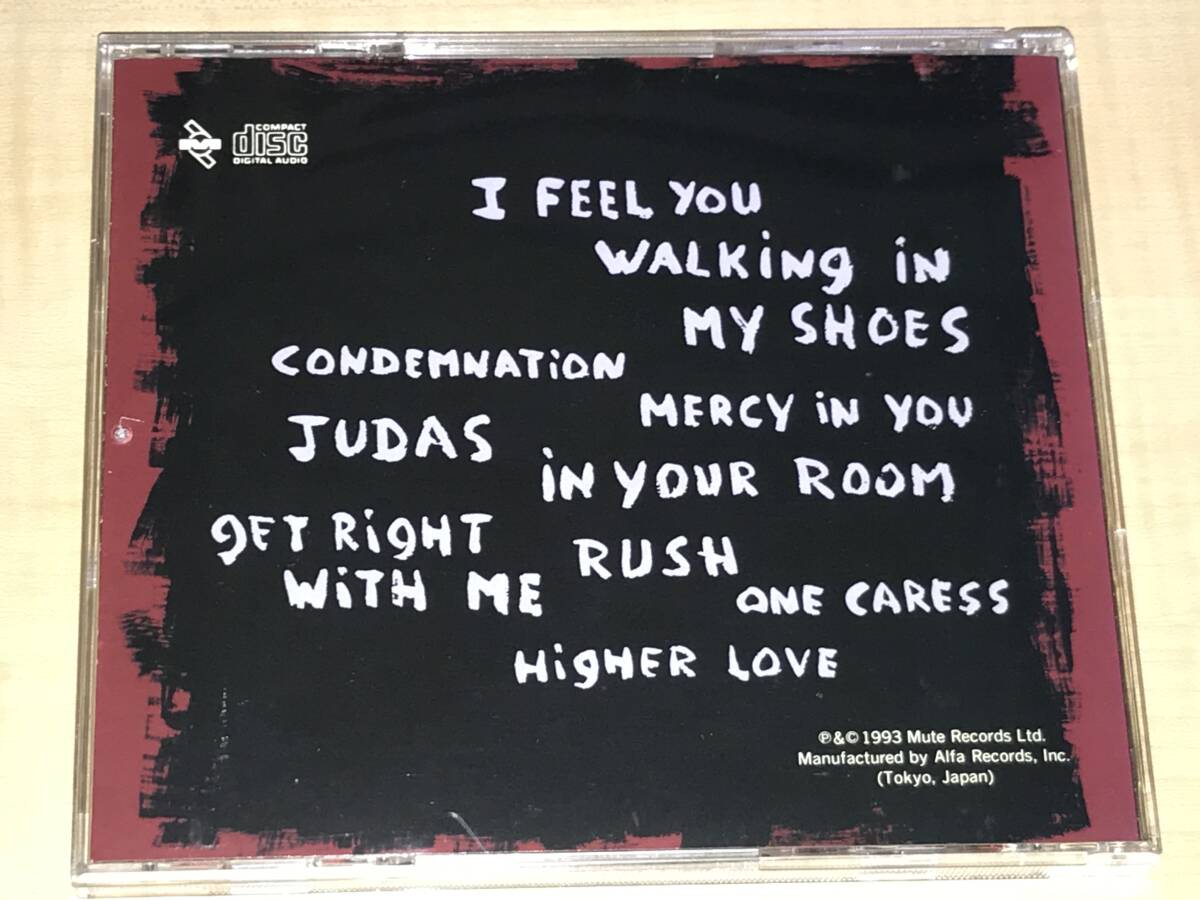 COMPACT
disc
DIGITAL AUDIO
I FEEL YOU
WALKiNg iN
MY SHOES
CONDEMNATiON
MERCY iN YOU
JUDAS
iN YOUR ROOM
gET RigHT
WiTH ME
RUSH
ONE CARESS
HigHER LOVE
℗&© 1993 Mute Records Ltd.
Manufactured by Alfa Records, Inc.
(Tokyo, Japan)